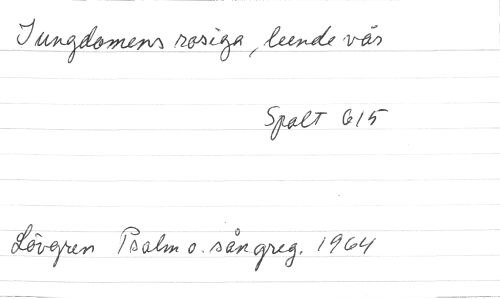 Iungdomens rosiga, leende vår
Spalt 615
Lövgren Psalm o. sångreg. 1964